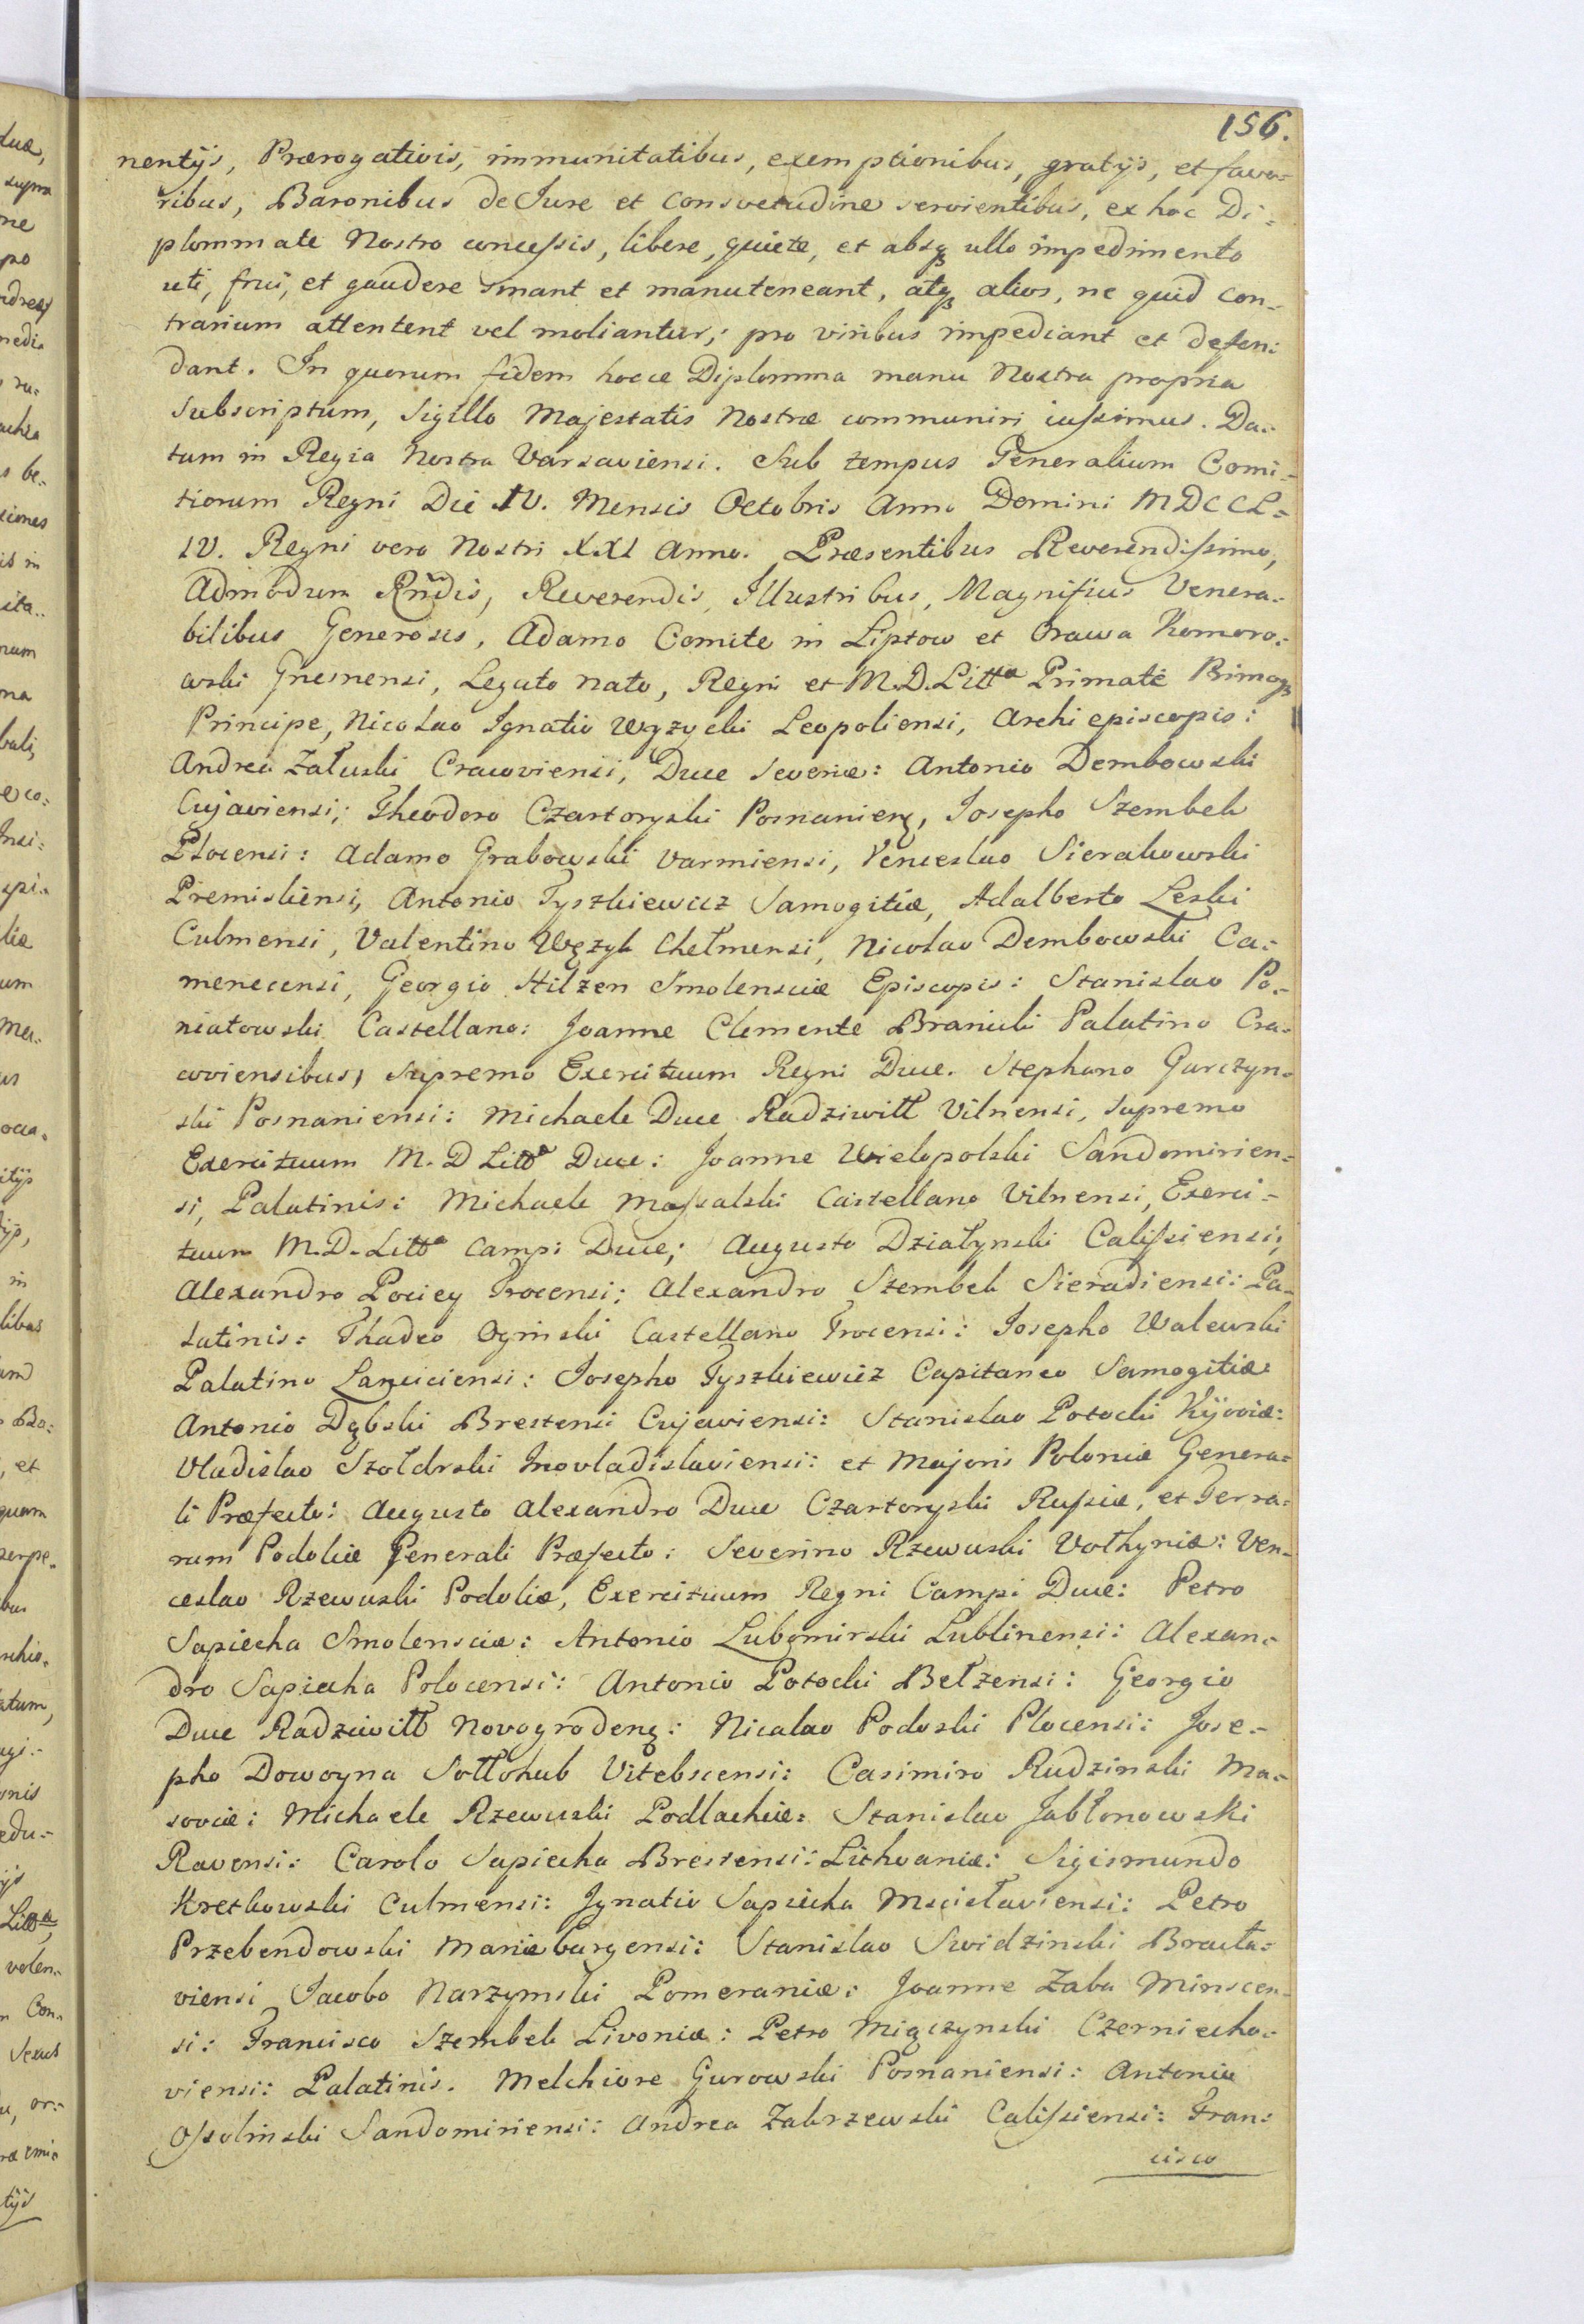 156.
nentijs, Prærogativis, immunitatibus, exemptionibus, gratijs, et favo=
ribus, Baronibus de Jure et Consvetudine servientibus, ex hoc Di=
plommate Nostro concessis, libere, quiete, et absq ullo impedimento
uti, frui, et gaudere sinant et manuteneant, atq alios, ne quid con=
trarium attentent vel moliantur; pro viribus impediant et defen=
dant. In quorum fidem hocce Diplomma manu Nostra propria
Subscriptum, Sigillo Majestatis Nostræ communiri iussimus. Da=
tum in Regia Nostra Varsaviensi. Sub tempus Generalium Comi=
tiorum Regni Die IV. Mensis Octobris Anno Domini MDCCL=
IV. Regni vero Nostri XXI Anno. Præsentibus Reverendissimo,
Admodum Rndis, Reverendis, Illustribus, Magnificis Venera=
bilibus Generosis, Adamo Comite in Liptow et Orawa Komoro=
wski Gnesnensi, Legato nato, Regni et M.D. Litta Primate Primoq
Principe, Nicolao Ignatio Wyzycki Leopoliensi, Archiepiscopis:
Andrea Załuski Cracoviensi, Duce Severiæ: Antonio Dembowski
Cujaviensi; Theodoro Czartoryski Posnanienq, Josepho Szembek
Plocensi: Adamo Grabowski Varmiensi, Venceslao Sierakowski
Premisliensi, Antonio Tyszkiewicz Samogitiæ, Adalberto Leski
Culmensi, Valentino Węzyk Chełmensi, Nicolao Dembowski Ca=
menecensi, Georgio Hilzen Smolensciæ Episcopis: Stanislao Po=
niatowski Castellano: Joanne Clemente Branicki Palatino Cra=
coviensibus, Supremo Exercituum Regni Duce. Stephano Garczyn=
ski Posnaniensi: Michaele Duce Radziwiłł Vilnensi, Supremo
Exercituum M.D Litta Duce: Joanne Wielopolski Sandomirien=
si, Palatinis: Michaele Massalski Castellano Vilnensi, Exerci=
tuum M.D. Litta Campi Duce; Augusto Działynski Calissiensi;
Alexandro Pociey Trocensi; Alexandro Szembek Sieradiensi: Pa=
latinis: Thadeo Oginski Castellano Trocensi: Josepho Walewski
Palatino Lanciciensi: Josepho Tyszkiewicz Capitaneo Samogitiæ:
Antonio Dąbski Brestensi Cujaviensi: Stanislao Potocki Kijoviæ:
Vladislao Szołdrski Inovladislaviensi: et Majoris Poloniæ Genera=
li Præfecto: Augusto Alexandro Duce Czartoryski Russiæ, et Terra=
rum Podoliæ Generali Præfecto: Severino Rzewuski Vołhyniæ: Ven=
ceslao Rzewuski Podoliæ, Exercituum Regni Campi Duce: Petro
Sapiecha Smolensciæ: Antonio Lubomirski Lublinensi: Alexan=
dro Sapiecha Polocensi: Antonio Potocki Bełzensi: Georgio
Duce Radziwiłł Novogrodenq: Nicolao Podoski Plocensi: Jose=
pho Dowoyna Sołłohub Vitebscensi: Casimiro Rudzinski Ma=
soviæ: Michaele Rzewuski Podlachiæ: Stanislao Jabłonowski
Ravensi: Carolo Sapiecha Brestensi: Lithvaniæ: Sigismundo
Kretkowski Culmensi: Ignatio Sapiecha Mscisłaviensi: Petro
Przebendowski Mariæburgensi: Stanislao Swidzinski Bracła=
viensi Jacobo Narzymski Pomeraniæ: Joanne Zaba Minscen=
si: Francisco Szembek Livoniæ: Petro Miączynski Czerniecho=
viensi: Palatinis. Melchiore Gurowski Posnaniensi: Antonio
Ossolinski Sandomiriensi: Andrea Zakrzewski Calissiensi: Fran=
cisco